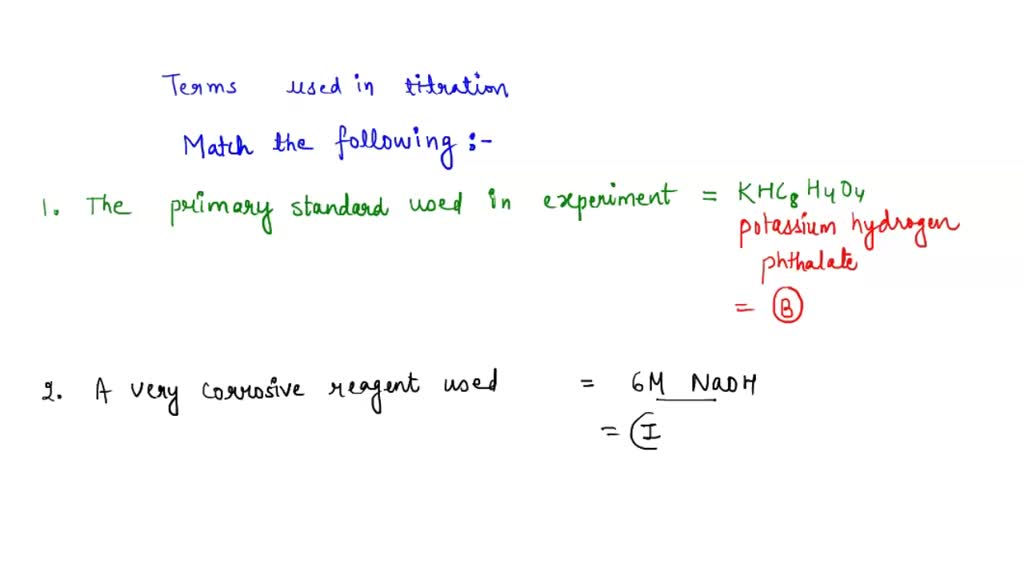 Terms used in titration
Match the following :-
1. The primary standard used in experiment = KHC₈H₄O₄
potassium hydrogen
phthalate
= B
2. A very corrosive reagent used = 6M NaOH
= I